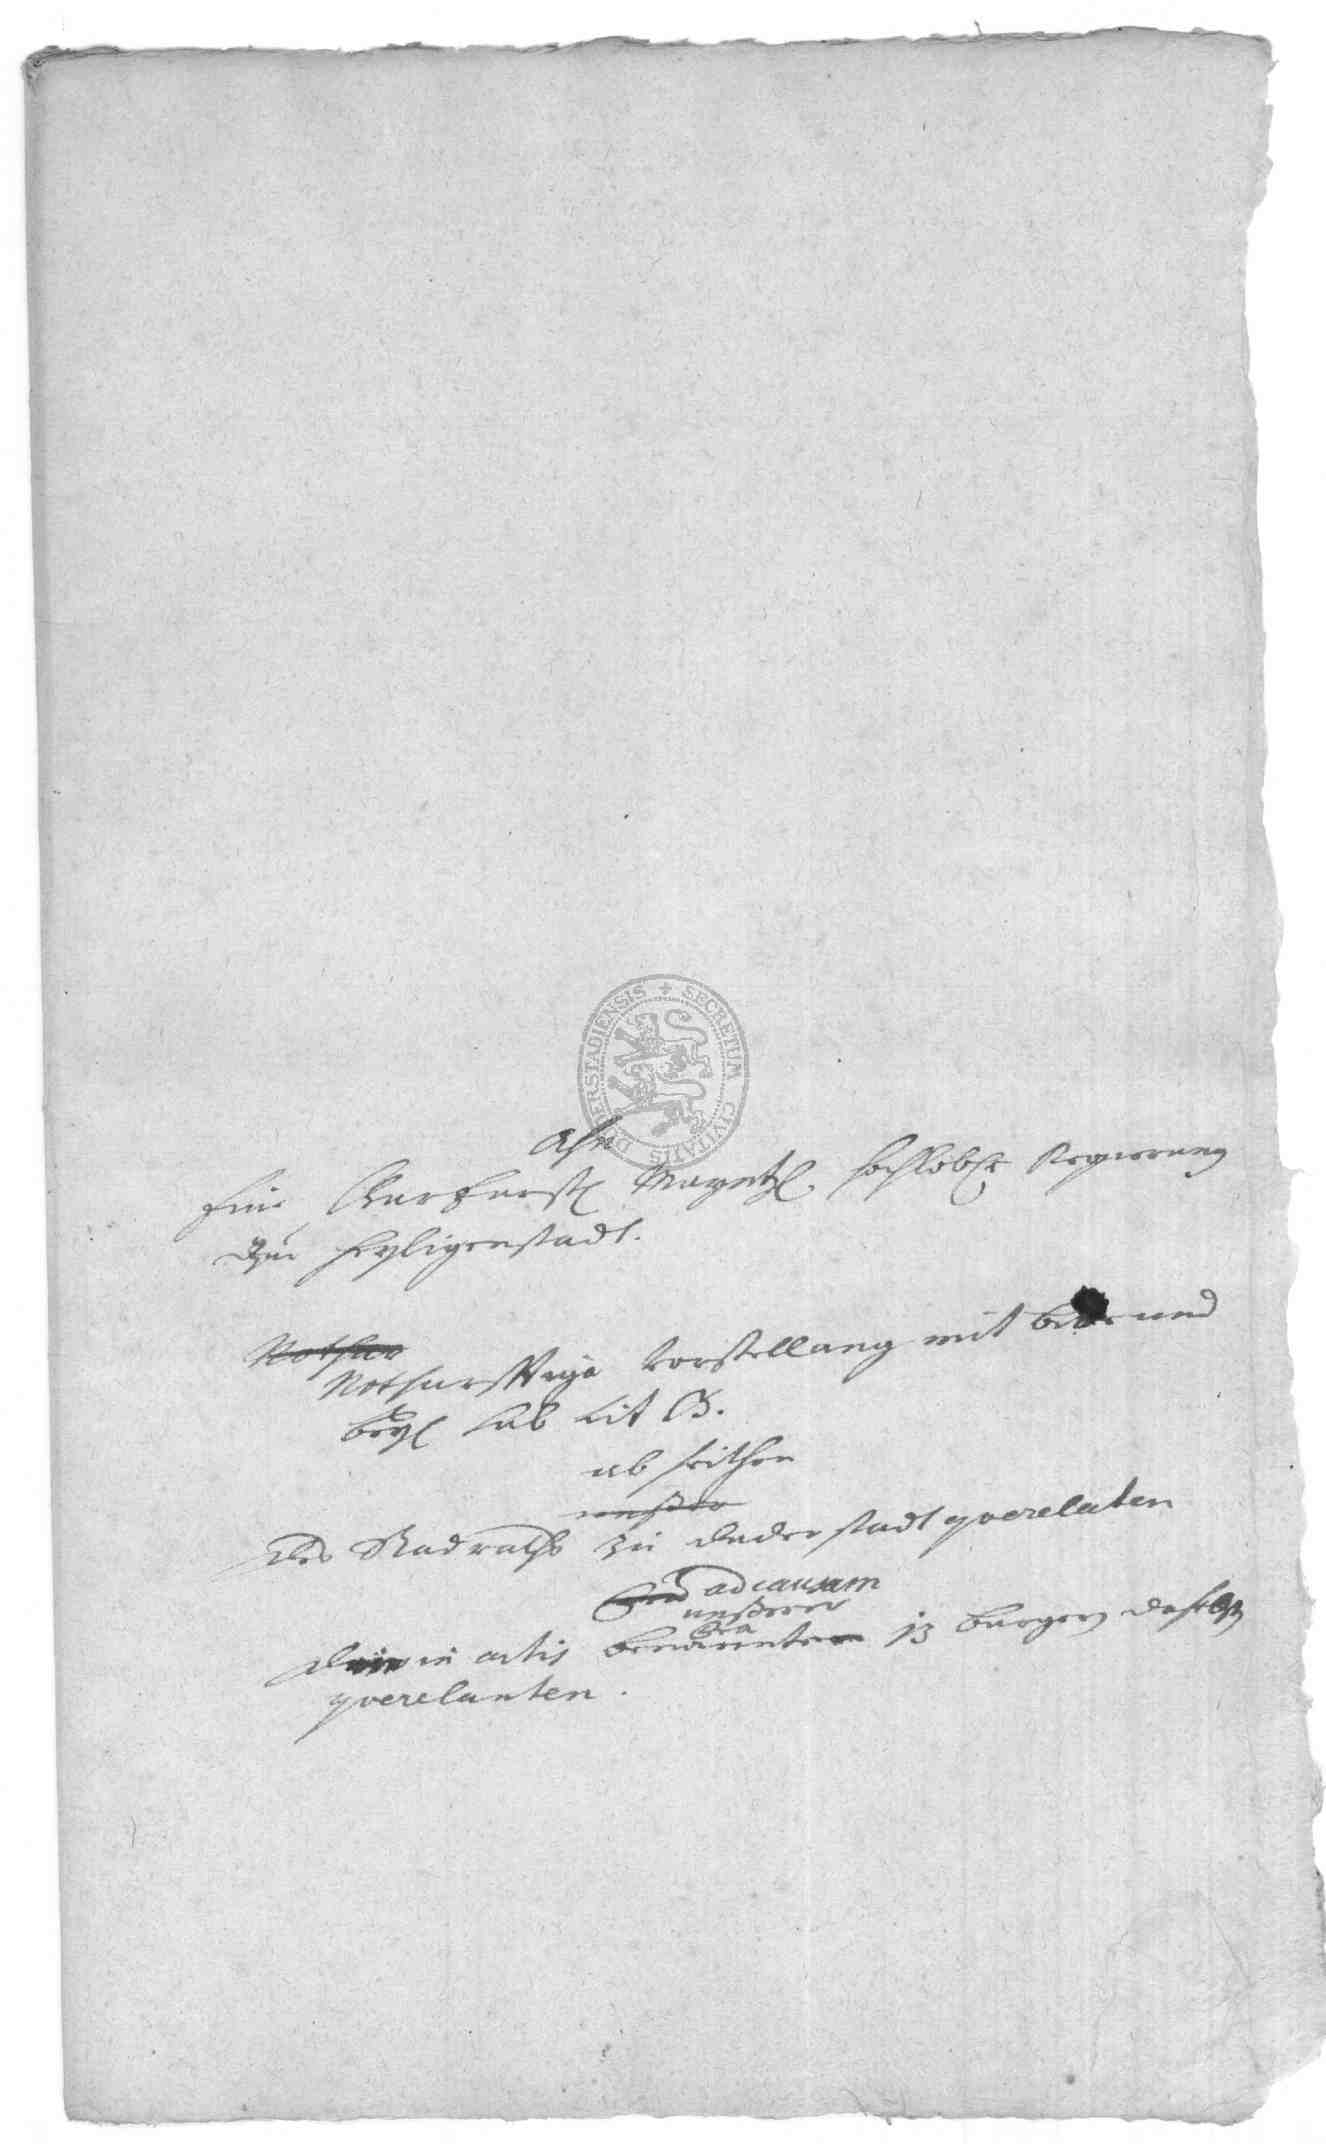 SECRETUM CIVITATIS DUDERSTADIENSIS
Ahn
Eine Churfürstl Mayntzl. hochlöbl Regierung
zu Heyligenstadt.
Nothur
Nothurfftige Vorstellung mit bitt und
beyl sub Lit B.
ab seithen
unßer
des Stadraths zu Duderstadt qverelaten
ad causam
unßerer
in actis benannten 13 burgern daselbst
qverelanten.